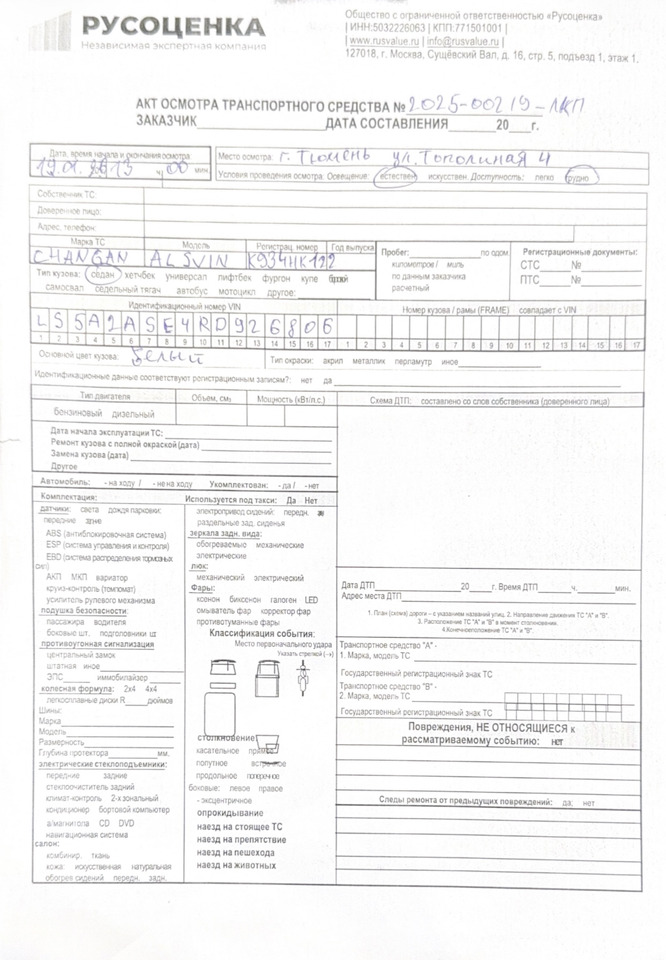 РУСОЦЕНКА
Независимая экспертная компания
Общество с ограниченной ответственностью «Русоценка»
| ИНН:5032226063 | КПП:771501001 |
| www.rusvalue.ru | info@rusvalue.ru |
127018, г. Москва, Сущёвский Вал, д. 16, стр. 5, подъезд 1, этаж 1.
АКТ ОСМОТРА ТРАНСПОРТНОГО СРЕДСТВА № 2025-00219-ЛКП
ЗАКАЗЧИК ДАТА СОСТАВЛЕНИЯ 20 г.
Дата, время начала и окончания осмотра:
13 ч 00 мин.
Место осмотра: г. Тюмень ул. Тополиная 4
Условия проведения осмотра. Освещение: естествен искусствен. Доступность: легко трудно
Собственник ТС:
Доверенное лицо:
Адрес, телефон:
Марка ТС Модель Регистрац. номер Год выпуска
CHANGAN ALSVIN К934НК122
Пробег: по одом
километров / миль
по данным заказчика
расчетный
Регистрационные документы:
СТС № 
ПТС №
Тип кузова: седан хетчбек универсал лифтбек фургон купе
самосвал седельный тягач автобус мотоцикл другое:
Идентификационный номер VIN Номер кузова / рамы (FRAME) совпадает с VIN
LS5A2ASE4RD926806
1 2 3 4 5 6 7 8 9 10 11 12 13 14 15 16 17 1 2 3 4 5 6 7 8 9 10 11 12 13 14 15 16 17
Основной цвет кузова: Белый Тип окраски: акрил металлик перламутр иное
Идентификационные данные соответствуют регистрационным записям?: нет да
Тип двигателя Объем, см₃ Мощность (кВт/л.с.)
бензиновый дизельный
Дата начала эксплуатации ТС:
Ремонт кузова с полной окраской(дата)
Замена кузова (дата)
Другое
Схема ДТП: составлено со слов собственника (доверенного лица)
Автомобиль: - на ходу / - не на ходу Укомплектован: - да / - нет
Комплектация:
датчики: света дождя парковки:
передние
ABS (антиблокировочная система)
ESP (система управления и контроля)
EBD (система распределения тормозных сил)
АКП МКП вариатор
круиз-контроль (темпомат)
усилитель рулевого механизма
подушка безопасности:
пассажира водителя
боковые шт. подголовники шт
противоугонная сигнализация
центральный замок
штатная иное
ЭПС иммобилайзер
колесная формула: 2x4 4x4
легкосплавные диски R дюймов
Шины:
Марка
Модель
Размерность
Глубина протектора мм.
электрические стеклоподъемники:
передние задние
стеклоочиститель задний
климат-контроль 2-х зональный
кондиционер бортовой компьютер
а/магнитола CD DVD
навигационная система
салон:
комбинир. ткань
кожа: искусственная натуральная
обогрев сидений передн. задн.
Используется под такси: Да Нет
электропривод сидений: передн.
раздельные зад. сиденья
зеркала задн. вида:
обогреваемые механические
электрические
люк:
механический электрический
Фары:
ксенон биксенон галоген LED
омыватель фар корректор фар
противотуманные фары
Классификация события:
Место первоначального удара
Указать стрелкой (→)
столкновение
касательное прямое
попутное встречное
продольное поперечное
боковые: левое правое
- эксцентричное
опрокидывание
наезд на стоящее ТС
наезд на препятствие
наезд на пешехода
наезд на животных
Дата ДТП 20 г. Время ДТП ч. мин.
Адрес места ДТП
1. План (схема) дороги – с указанием названий улиц. 2. Направление движения ТС "А" и "В".
3. Расположение ТС "А" и "В" в момент столкновения.
4.Конечноеположение ТС "А" и "В".
Транспортное средство "А" -
1. Марка, модель ТС
Государственный регистрационный знак ТС
Транспортное средство "В" -
2. Марка, модель ТС
Государственный регистрационный знак ТС
Повреждения, НЕ ОТНОСЯЩИЕСЯ к
рассматриваемому событию: нет
Следы ремонта от предыдущих повреждений: да; нет